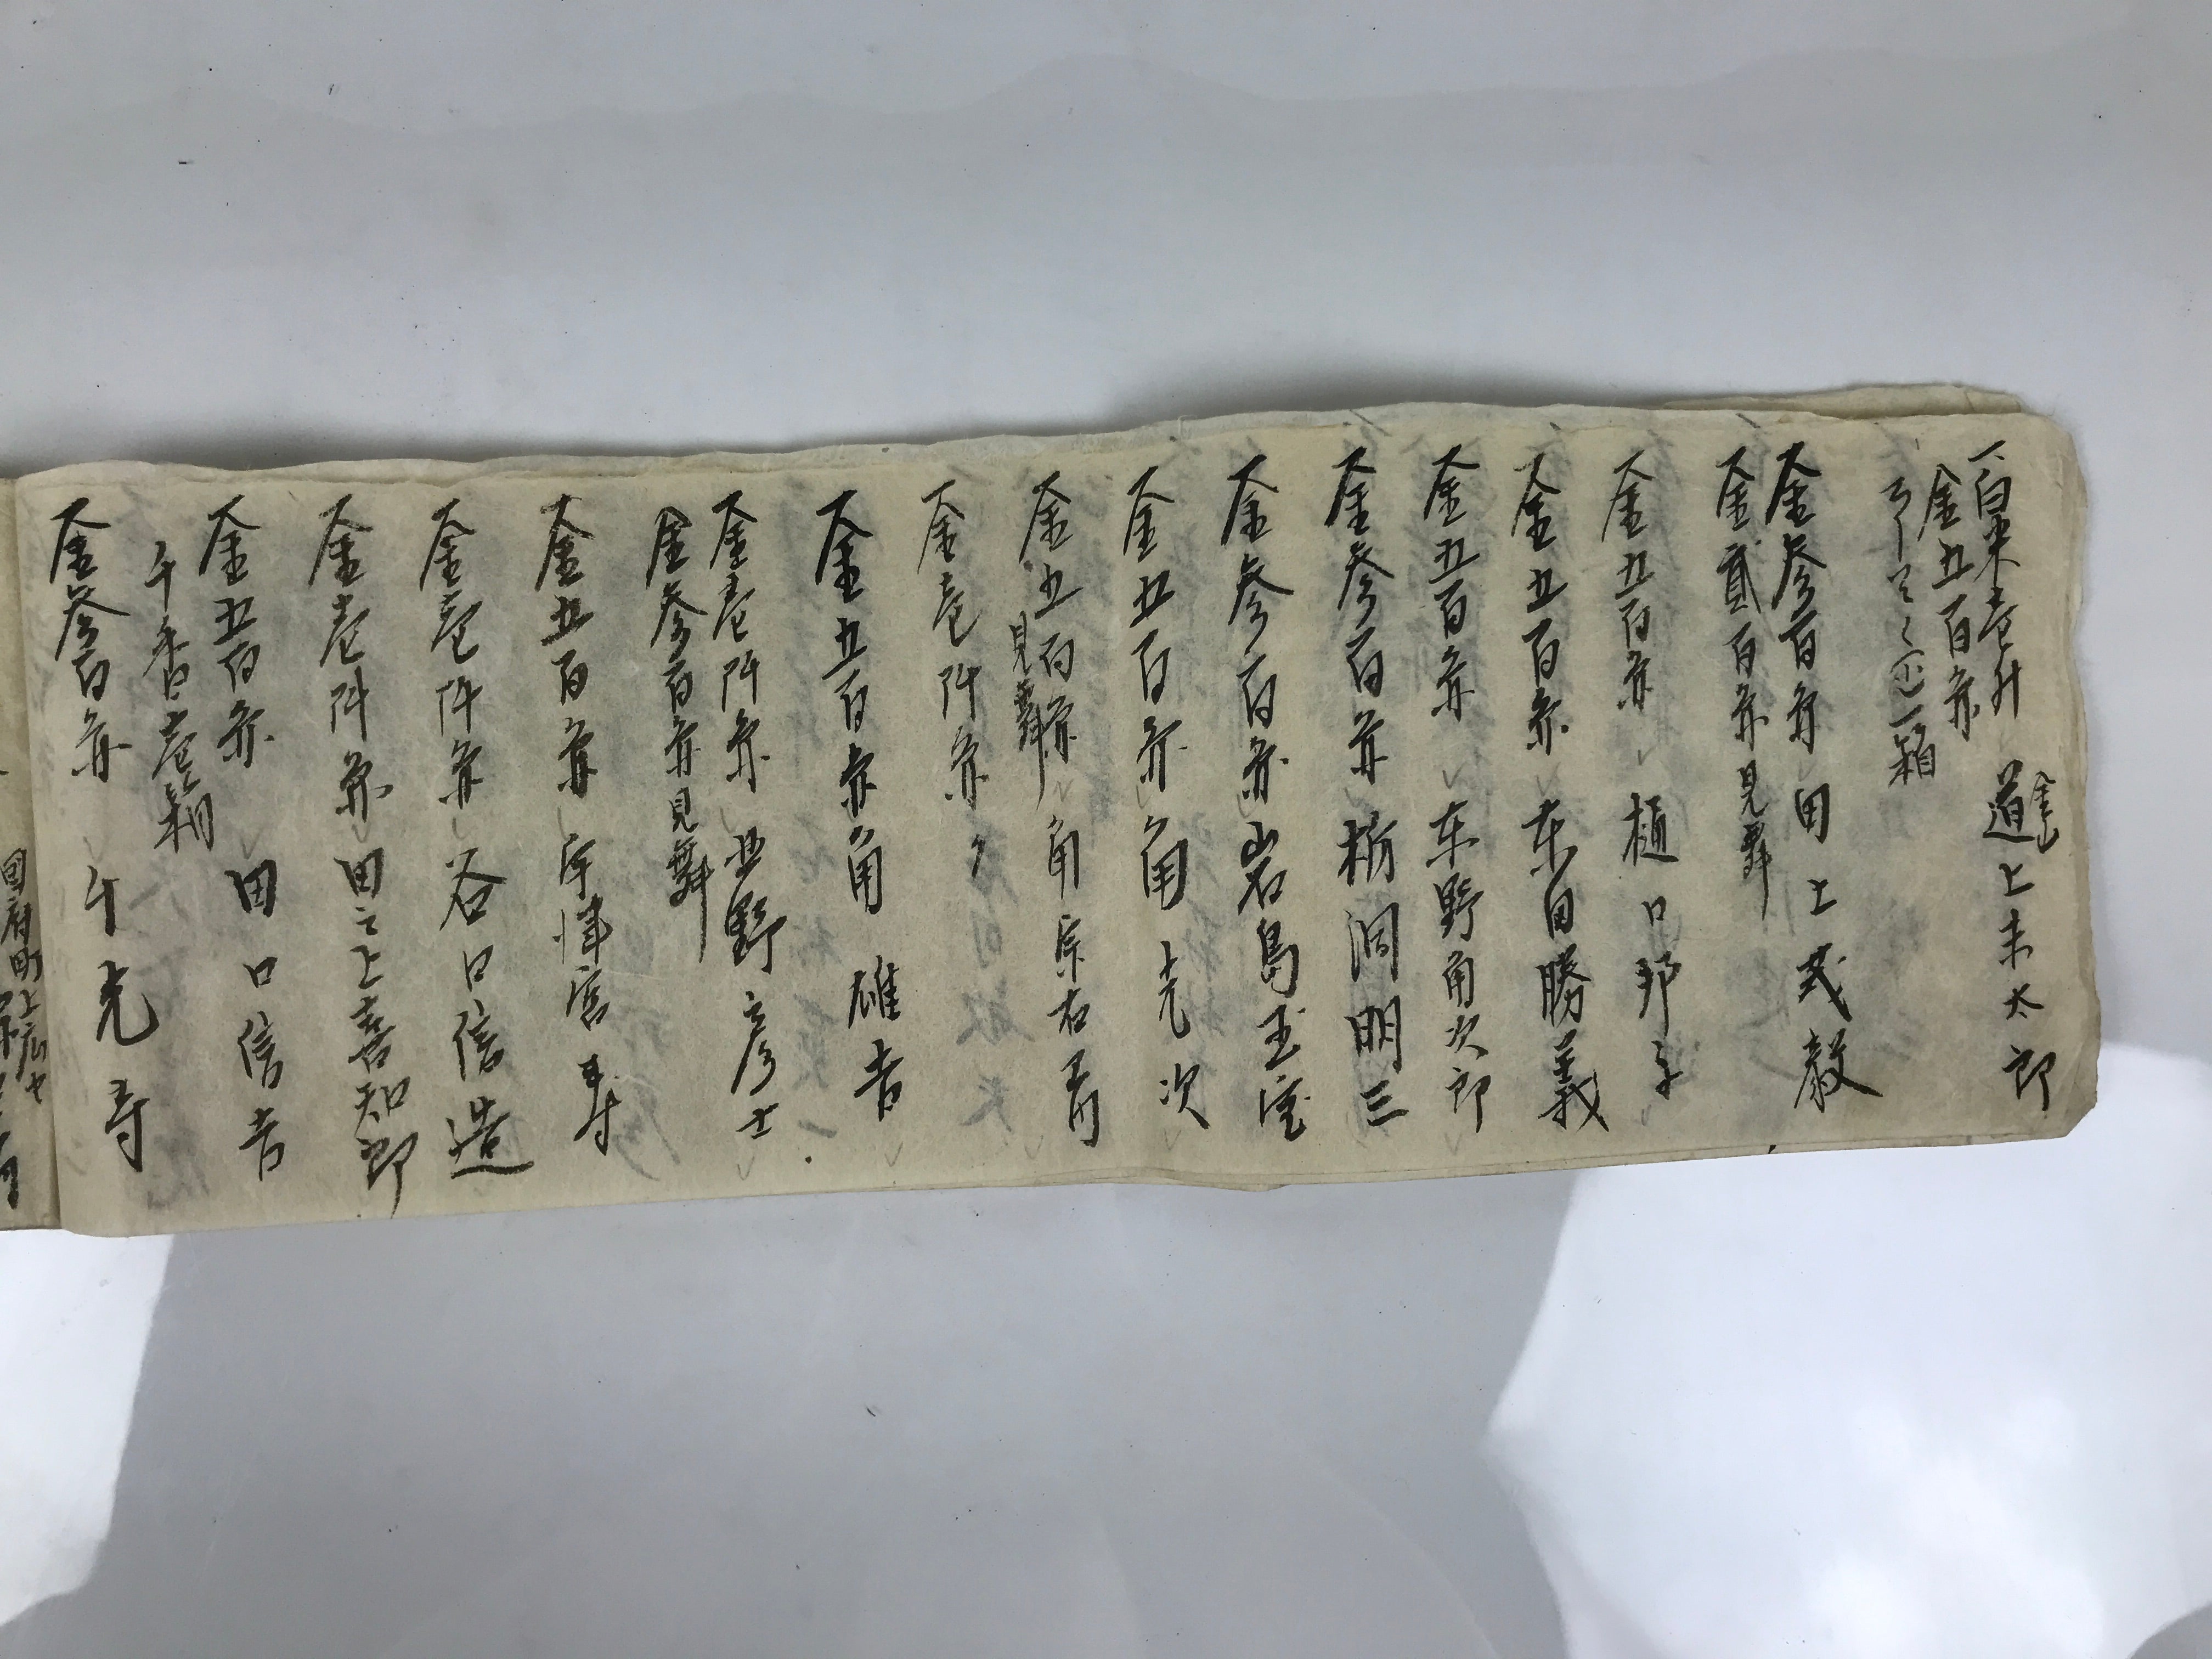 一白米壱升 道上末太郎
金五百円
一金参百円 田上武毅
一金貳百円 見舞
一金五百円 樋口邦子
一金五百円 東田勝義
一金五百円 東野角次郎
一金参百円 栃洞明三
一金参百円 岩島玉宝
一金五百円 角 光次
一金五百円 角 宗右
見舞
一金壱阡円 〃
一金五百円 角 雄吉
一金壱阡円 野彦士
金参百円 見舞
一金五百円
一金壱阡円 谷口信造
一金壱阡円 田之上喜知郎
一金五百円 田口信吉
千香壱箱
一金参百円 光寺
国府町上広セ